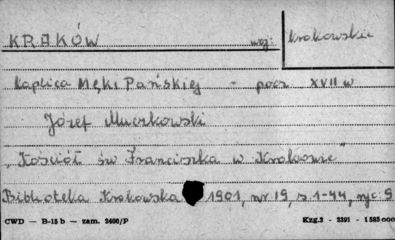 KRAKÓW woj: krakowskie
Kaplica Męki Pańskiej - pocz XVII w
Józef Muczkowski
"Kościół św Franciszka w Krakowie"
Biblioteka Krakowska 1901, nr 19, s 1-44, ryc. 9
CWD — B-15 b — zam. 2400/P Kzg.3 - 2291 - 1 585 000